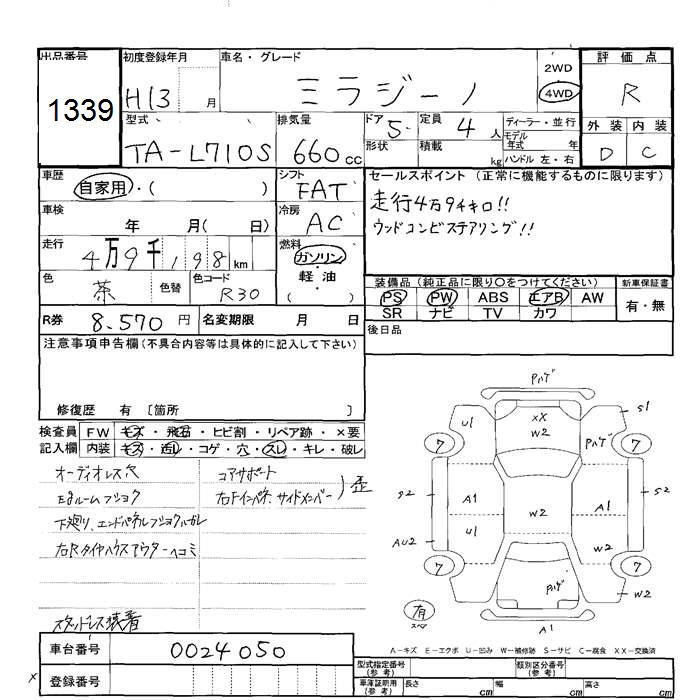 出品番号 初度登録年月 車名・グレード 2WD 評価点
1339 H13 月 ミラジーノ 4WD R
型式 排気量 ドア 5 定員 4 人 ディーラー・並行 外装 内装
TA-L710S 660 cc 形状 積載 kg モデル年式 年 D C
ハンドル 左・右
車歴 自家用・( ) シフト FAT セールスポイント (正常に機能するものに限ります)
車検 年 月( 日) 冷房 AC 走行4万9千キロ!!
ウッドコンビステアリング!!
走行 4万9千198 km 燃料 ガソリン・軽油 ( )
色 茶 色替 色コード R30
装備品 (純正品に限り○をつけてください) 新車保証書
PS PW ABS エアB AW 有・無
SR ナビ TV カワ
R券 8.570 円 名変期限 月 日 後日品
注意事項申告欄(不具合内容等は具体的に記入して下さい)
修復歴 有 〔箇所 〕
検査員 FW キズ・飛石・ヒビ割・リペア跡・×要
記入欄 内装 キズ・汚レ・コゲ・穴・スレ・キレ・破レ
オーディオレス穴 コアサポート
右Fインパネ、サイドメンバー ) 歪
下廻り、エンドパネル
スタッドレス装着
Pハゲ
U1 XX W2 S1
7 Pハゲ 7
S2 A1 A1 S2
AU2 U1 W2 W2
7 Pハゲ 7
W2
有 スペア A1
A-キズ E-エクボ U-凹み W-補修跡 S-サビ C-腐食 XX-交換済
車台番号 0024050
型式指定番号 (参考) 類別区分番号 (参考)
X 登録番号 車庫証明用 (参考) 長さ cm 幅 cm 高さ cm